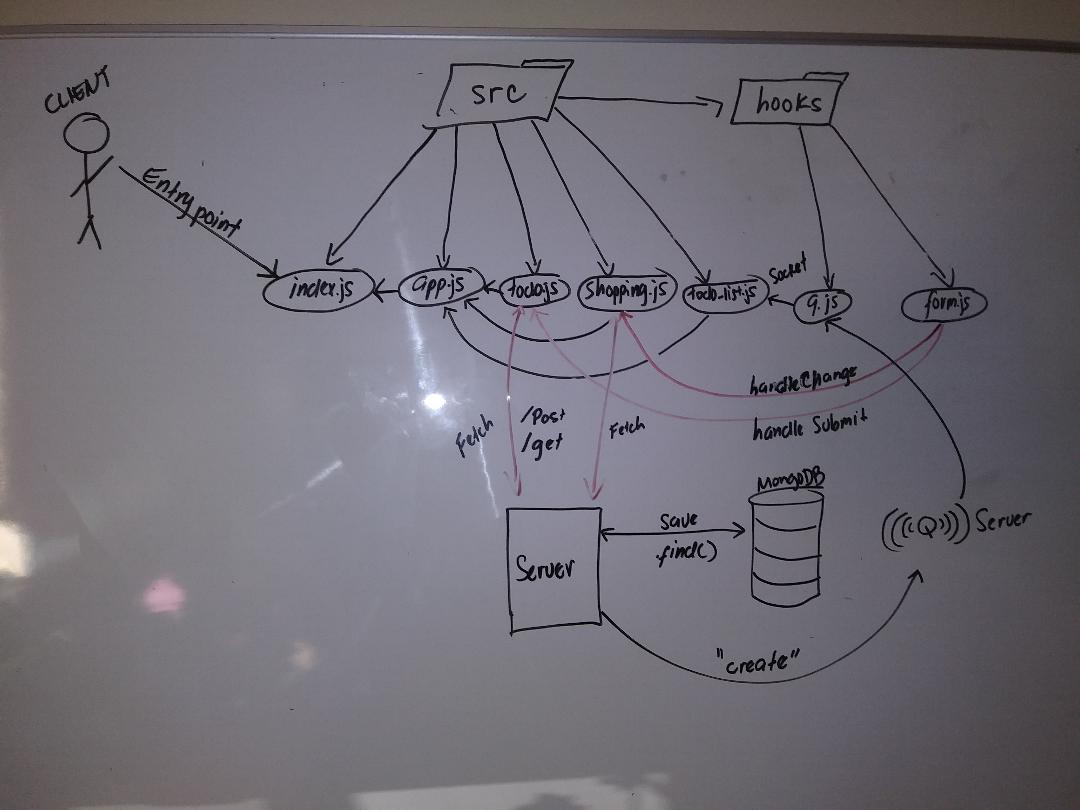 CLIENT
src
hooks
Entry point
index.js
app.js
todo.js
shopping.js
todo-list.js
Socket
q.js
form.js
handleChange
handle Submit
Fetch
/Post
/get
Fetch
MongoDB
Save
.find()
Server
Q
Server
"create"